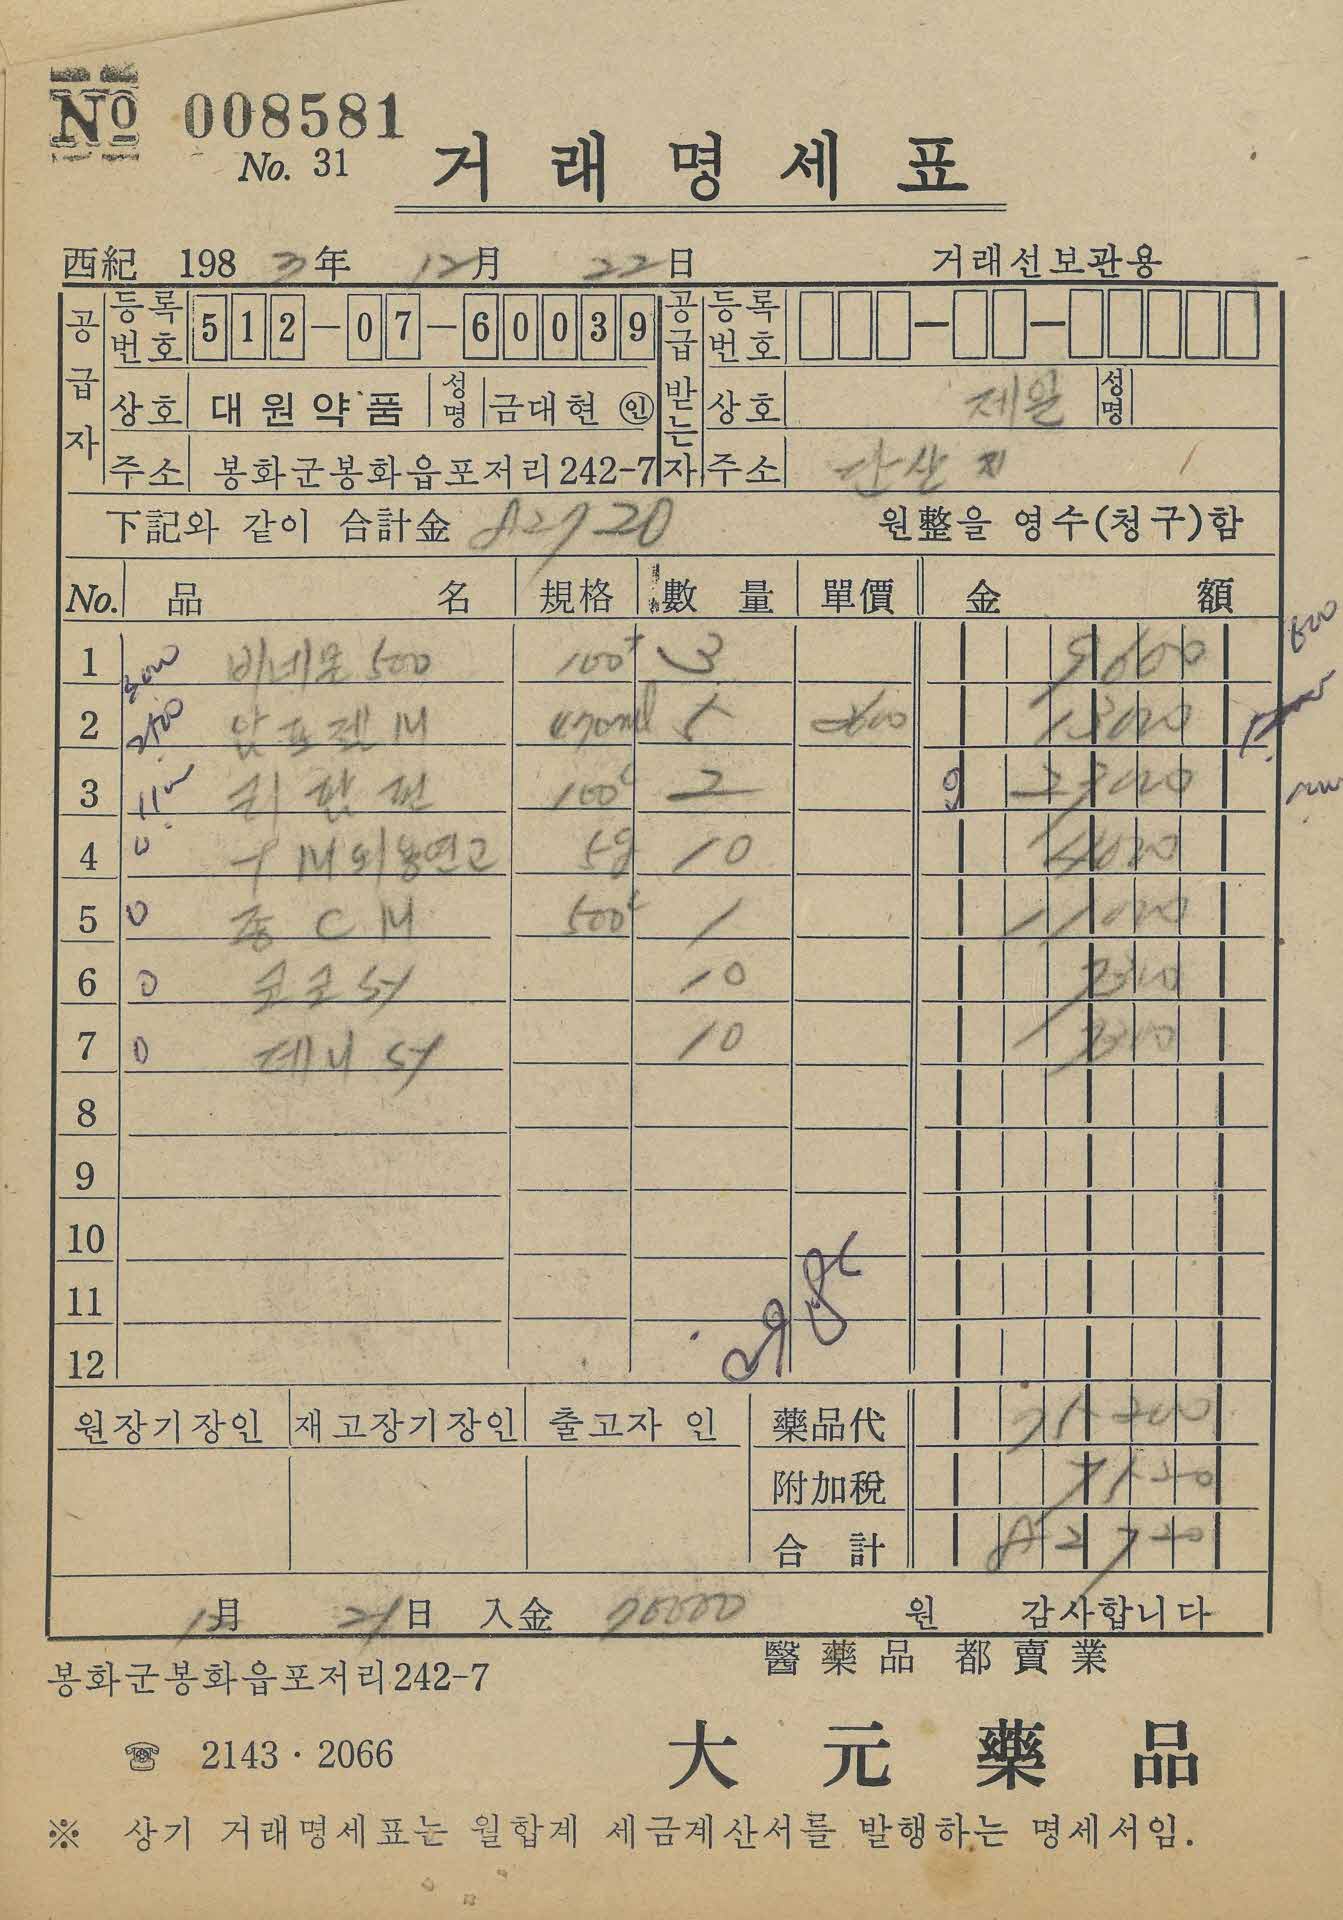 No 008581
No. 31
거래명세표
西紀 1983年 12月 22日 거래선보관용
공급자 등록번호 512-07-60039 공급받는자 등록번호
상호 대원약품 성명 금대현 ㊞ 상호 제일 성명
주소 봉화군봉화읍포저리242-7 주소 단산
下記와 같이 合計金 82720 원整을 영수(청구)함
No. 品 名 規格 數量 單價 金 額
1 비네몬 500 3 9600
2 470ml 5 13000
3 2
4 외용연고 5g 10
5 1 11000
6 코코 SY 10
7 제니 SY 10
8
9
10
11
12
원장기장인 재고장기장인 출고자 인 藥品代 75200
附加稅 7520
合計 82720
12月 21日 入金 70000 원 감사합니다
봉화군봉화읍포저리242-7 醫藥品 都賣業
☏ 2143·2066 大元藥品
※ 상기 거래명세표는 월합계 세금계산서를 발행하는 명세서임.